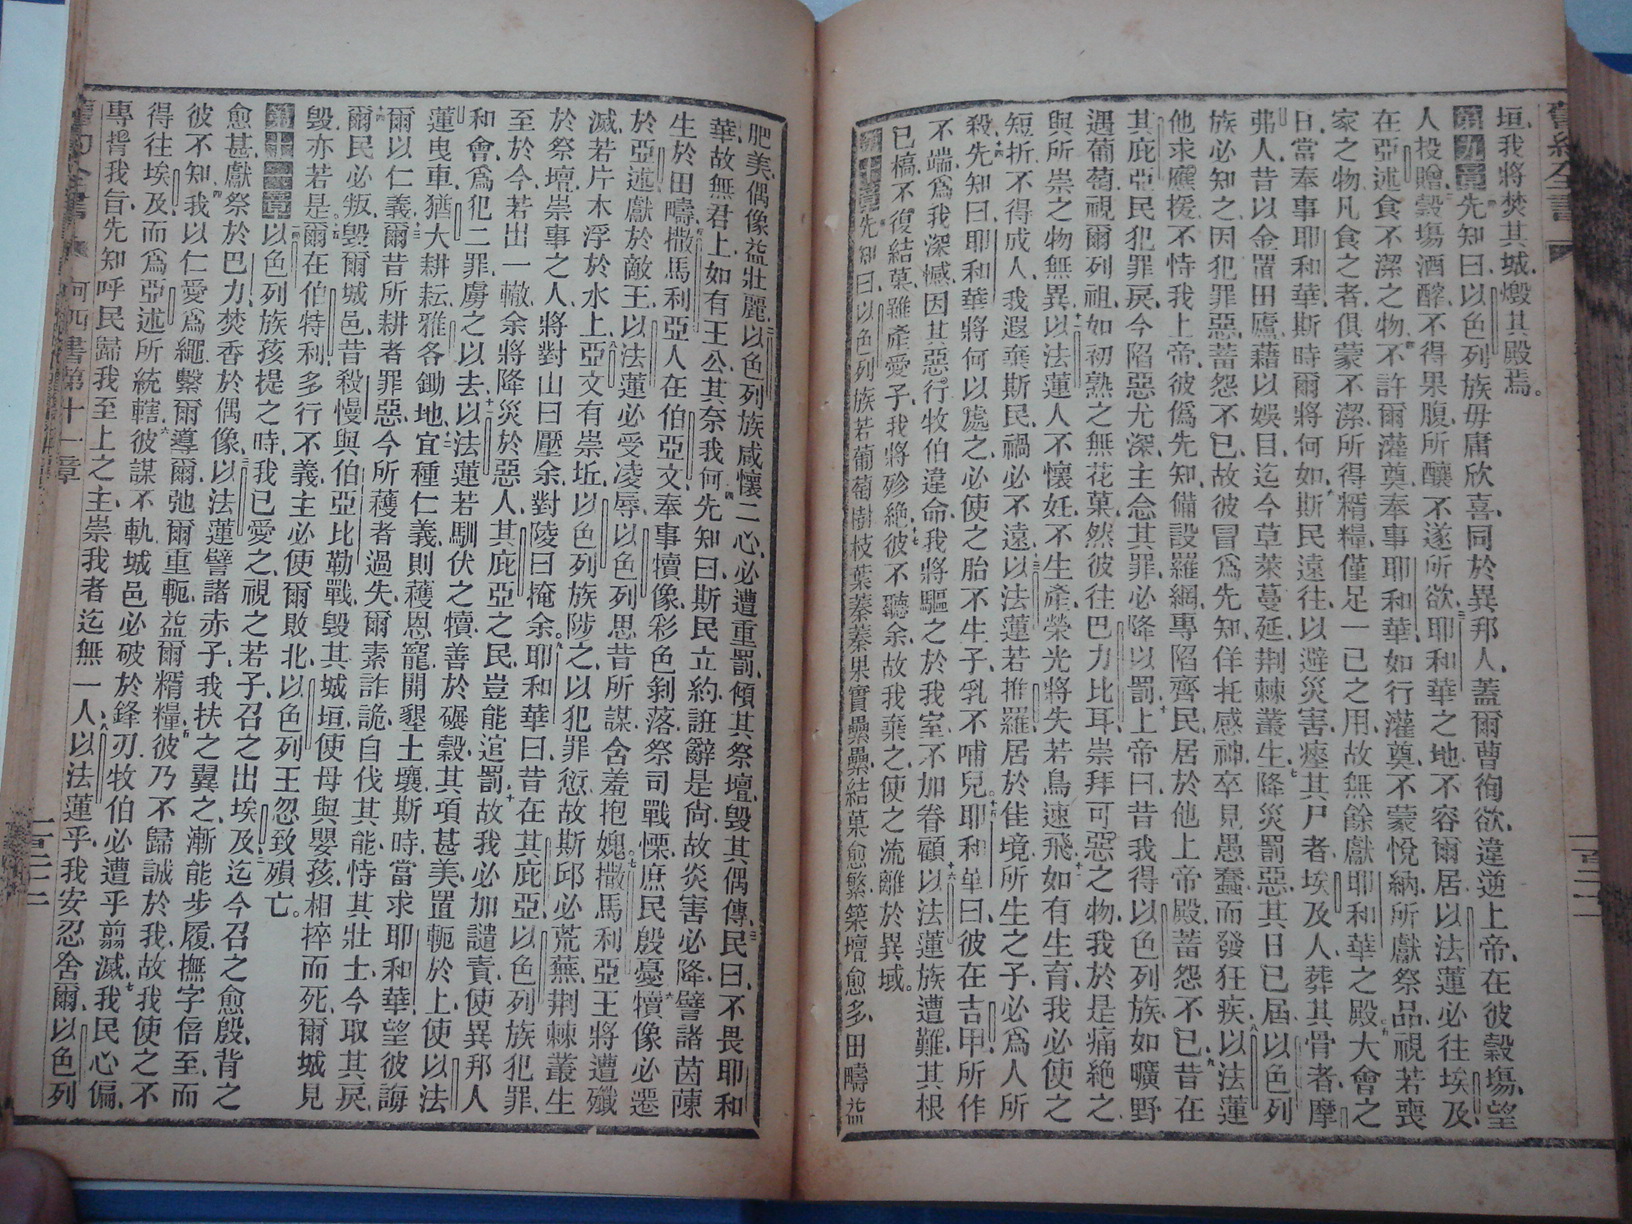 舊約全書
垣、我將焚其城、燬其殿焉。
第九章 先知曰、以色列族毋庸欣喜、同於異邦人、蓋爾曹徇欲、違逆上帝、在彼穀塲、望
人投贈、穀塲酒醡、不得果腹、所釀不遂所欲、耶和華之地、不容爾居、以法蓮必往埃及、
在亞述食不潔之物、不許爾灌奠、奉事耶和華、如行灌奠、不蒙悅納、所獻祭品、視若喪
家之物、凡食之者、俱蒙不潔、所得糈糧、僅足一己之用、故無餘獻耶和華之殿、大會之
日、當奉事耶和華、斯時爾將何如、斯民遠往、以避災害、瘞其尸者、埃及人、葬其骨者、摩
弗人、昔以金置田廬、藉以娛目、迄今草萊蔓延、荆棘叢生、降災罰惡、其日已屆、以色列
族必知之、因犯罪惡、蓄怨不已、故彼冒爲先知、佯托感神、卒見愚蠢、而發狂疾、以法蓮
他求應援、不恃我上帝、彼僞先知、備設羅網、專陷齊民、居於他上帝殿、蓄怨不已、昔在
其庇亞民犯罪戾、今陷惡尤深、主念其罪、必降以罰、上帝曰、昔我得以色列族、如曠野
遇葡萄、視爾列祖、如初熟之無花菓、然彼往巴力比耳、崇拜可惡之物、我於是痛絕之、
與所崇之物無異、以法蓮人不懷妊、不生產、榮光將失、若鳥速飛、如有生育、我必使之
短折、不得成人、我遐棄斯民、禍必不遠、以法蓮若推羅、居於佳境、所生之子、必爲人所
殺、先知曰、耶和華將何以處之、必使之胎不生子、乳不哺兒、耶和華曰、彼在吉甲、所作
不端、爲我深憾、因其惡行、牧伯違命、我將驅之於我室、不加眷顧、以法蓮族遭難、其根
已槁、不復結菓、雖產愛子、我將殄絕、彼不聽余、故我棄之、使之流離於異域。
第十章 先知曰、以色列族若葡萄樹、枝葉蓁蓁、果實纍纍、結菓愈繁、築壇愈多、田疇益
肥美、偶像益壯麗、以色列族咸懷二心、必遭重罰、傾其祭壇、毀其偶像、民曰、不畏耶和
華、故無君上、如有王公、其奈我何、先知曰、斯民立約、誑辭是尙、故災害必降、譬諸茵蔯
生於田疇、撒馬利亞人在伯亞文、奉事犢像、彩色剝落、祭司戰慄、庶民殷憂、犢像必遷
於亞述、獻於敵王、以法蓮必受凌辱、以色列思昔所謀、舍羞抱媿、撒馬利亞王將遭殲
滅、若片木浮於水上、亞文有崇坵、以色列族陟之、以犯罪愆、故斯邱必荒蕪、荆棘叢生
於祭壇、崇事之人、將對山曰壓余、對陵曰掩余。耶和華曰、昔在其庇亞、以色列族犯罪、
至於今若出一轍、余將降災於惡人、其庇亞之民、豈能逭罰、故我必加譴責、使異邦人
和會、爲犯二罪、虜之以去、以法蓮若馴伏之犢、善於碾穀、其項甚美、置軛於上、使以法
蓮曳車、猶大耕耘、雅各鋤地、宜種仁義、則穫恩寵、開墾土壤、斯時當求耶和華、望彼誨
爾以仁義、爾昔所耕者罪惡、今所穫者過失、爾素詐詭、自伐其能、恃其壯士、今取其戾、
爾民必叛、毀爾城邑、昔殺慢與伯亞比勒戰、毀其城垣、使母與嬰孩、相捽而死、爾城見
毀亦若是、爾在伯特利、多行不義、主必使爾敗北、以色列王忽致殞亡。
第十一章 以色列族孩提之時、我已愛之、視之若子、召之出埃及、迄今召之愈殷、背之
愈甚、獻祭於巴力、焚香於偶像、以法蓮譬諸赤子、我扶之翼之、漸能步履、撫字倍至、而
彼不知、我以仁愛爲繩、繫爾導爾、弛爾重軛、益爾糈糧、彼乃不歸誠於我、故我使之不
得往埃及、而爲亞述所統轄、彼謀不軌、城邑必破於鋒刃、牧伯必遭乎翦滅、我民心偏、
專揹我旨、先知呼民歸我至上之主、崇我者迄無一人、以法蓮乎、我安忍舍爾、以色列
何西書第十一章